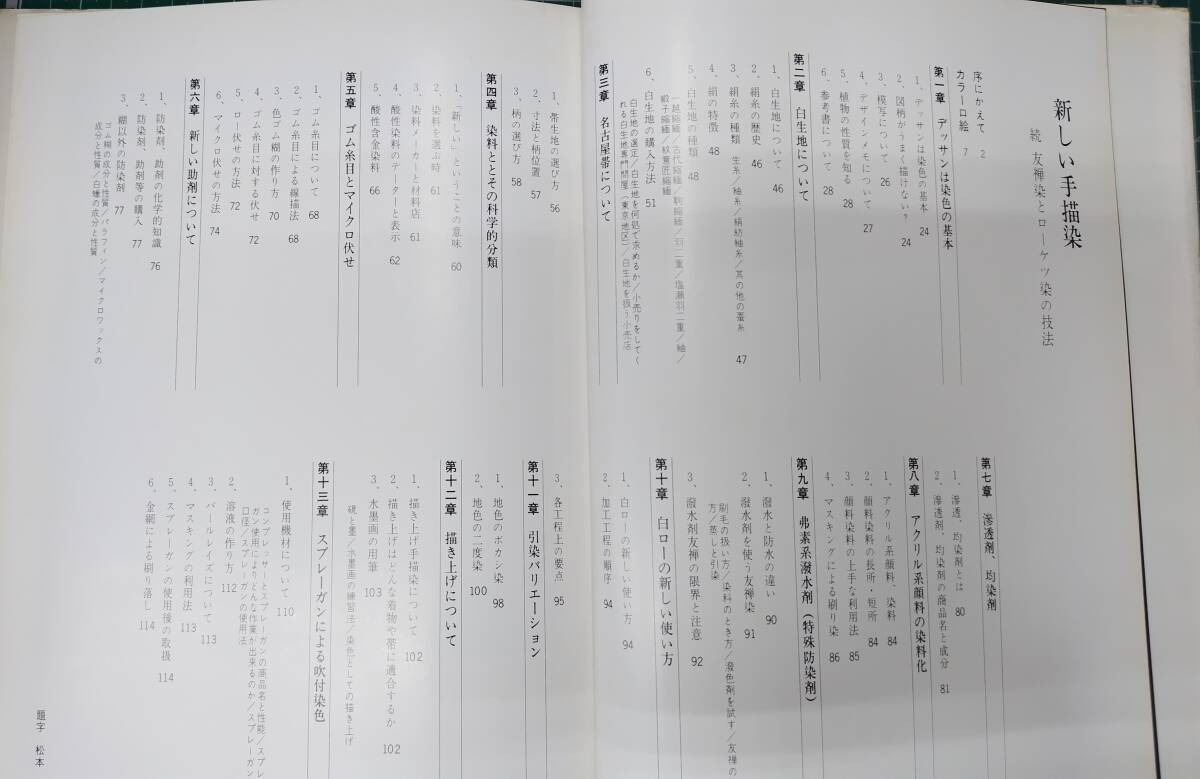 新しい手描染
続 友禅染とローケツ染の技法
序にかえて 2
カラー口絵 7
第一章 デッサンは染色の基本
1、デッサンは染色の基本 24
2、図柄がうまく描けない? 24
3、模写について 26
4、デザインメモについて 27
5、植物の性質を知る 28
6、参考書について 28
第二章 白生地について
1、白生地について 46
2、絹糸の歴史 46
3、絹糸の種類 生糸/紬糸/絹紡紬糸/其の他の蚕糸 47
4、絹の特徴 48
5、白生地の種類 48
一越縮緬/古代縮緬/駒縮緬/羽二重/塩瀬羽二重/紬/
緞子縮緬/紋意匠縮緬
6、白生地の購入方法 51
白生地の選定/白生地を何処で求めるか/小売りをしてく
れる白生地専門問屋(東京地区)/白生地を扱う小売店
第三章 名古屋帯について
1、帯生地の選び方 56
2、寸法と柄位置 57
3、柄の選び方 58
第四章 染料とその科学的分類
1、「新しい」ということの意味 60
2、染料を選ぶ時 61
3、染料メーカーと材料店 61
4、酸性染料のデーターと表示 62
5、酸性含金染料 66
第五章 ゴム糸目とマイクロ伏せ
1、ゴム糸目について 68
2、ゴム糸目による線描法 68
3、色ゴム糊の作り方 70
4、ゴム糸目に対する伏せ 72
5、ロー伏せの方法 72
6、マイクロ伏せの方法 74
第六章 新しい助剤について
1、防染剤、助剤の化学的知識 76
2、防染剤、助剤等の購入 77
3、糊以外の防染剤 77
ゴム糊の成分と性質/パラフィン/マイクロワックスの
成分と性質/白蠟の成分と性質
第七章 滲透剤、均染剤
1、滲透、均染剤とは 80
2、滲透剤、均染剤の商品名と成分 81
第八章 アクリル系顔料の染料化
1、アクリル系顔料、染料 84
2、顔料染料の長所・短所 84
3、顔料染料の上手な利用法 85
4、マスキングによる刷り染 86
第九章 弗素系潑水剤(特殊防染剤)
1、潑水と防水の違い 90
2、潑水剤を使う友禅染 91
刷毛の扱い方/染料のとき方/潑色剤を試す/友禅の
方/蒸しと引染
3、潑水剤友禅の限界と注意 92
第十章 白ローの新しい使い方
1、白ローの新しい使い方 94
2、加工工程の順序 94
3、各工程上の要点 95
第十一章 引染バリエーション
1、地色のボカシ染 98
2、地色の二度染 100
第十二章 描き上げについて
1、描き上げ手描染について 102
2、描き上げはどんな着物や帯に適合するか 102
3、水墨画の用筆 103
硯と墨/水墨画の練習法/染色としての描き上げ
第十三章 スプレーガンによる吹付染色
1、使用機材について 110
コンプレッサーとスプレーガンの商品名と性能/スプレ
ガン使用によりどんな作業が出来るのか/スプレーガン
口径/スプレーガンの使用法
2、溶液の作り方 112
3、パールレイズについて 113
4、マスキングの利用法 113
5、スプレーガンの使用後の取扱 114
6、金網による刷り落し 114
題字 松本